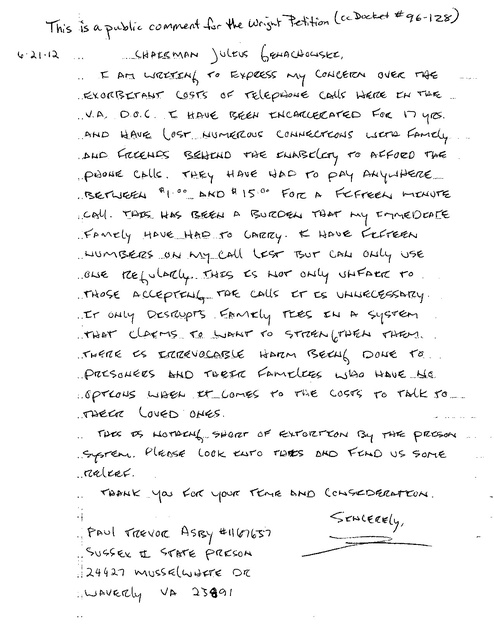 This is a public comment for the Wright Petition (cc Docket #96-128)
4-21-12 CHAIRMAN JULIUS GENACHOWSKI,
I AM WRITING TO EXPRESS MY CONCERN OVER THE
EXORBITANT COSTS OF TELEPHONE CALLS HERE IN THE
V.A. D.O.C. I HAVE BEEN INCARCERATED FOR 17 YRS.
AND HAVE LOST NUMEROUS CONNECTIONS WITH FAMILY
AND FRIENDS BEHIND THE INABILITY TO AFFORD THE
PHONE CALLS. THEY HAVE HAD TO PAY ANYWHERE
BETWEEN $1.00 AND $15.00 FOR A FIFTEEN MINUTE
CALL. THIS HAS BEEN A BURDEN THAT MY IMMEDIATE
FAMILY HAVE HAD TO CARRY. I HAVE FIFTEEN
NUMBERS ON MY CALL LIST BUT CAN ONLY USE
ONE REGULARLY. THIS IS NOT ONLY UNFAIR TO
THOSE ACCEPTING THE CALLS IT IS UNNECESSARY.
IT ONLY DISRUPTS FAMILY TIES IN A SYSTEM
THAT CLAIMS TO WANT TO STRENGTHEN THEM.
THERE IS IRREVOCABLE HARM BEING DONE TO
PRISONERS AND THEIR FAMILIES WHO HAVE NO
OPTIONS WHEN IT COMES TO THE COSTS TO TALK TO
THEIR LOVED ONES.
THIS IS NOTHING SHORT OF EXTORTION BY THE PRISON
SYSTEM. PLEASE LOOK INTO THIS AND FIND US SOME
RELIEF.
THANK YOU FOR YOUR TIME AND CONSIDERATION.
SINCERELY,
PAUL TREVOR ASBY #1167637
SUSSEX II STATE PRISON
24427 MUSSELWHITE DR
WAVERLY VA 23891